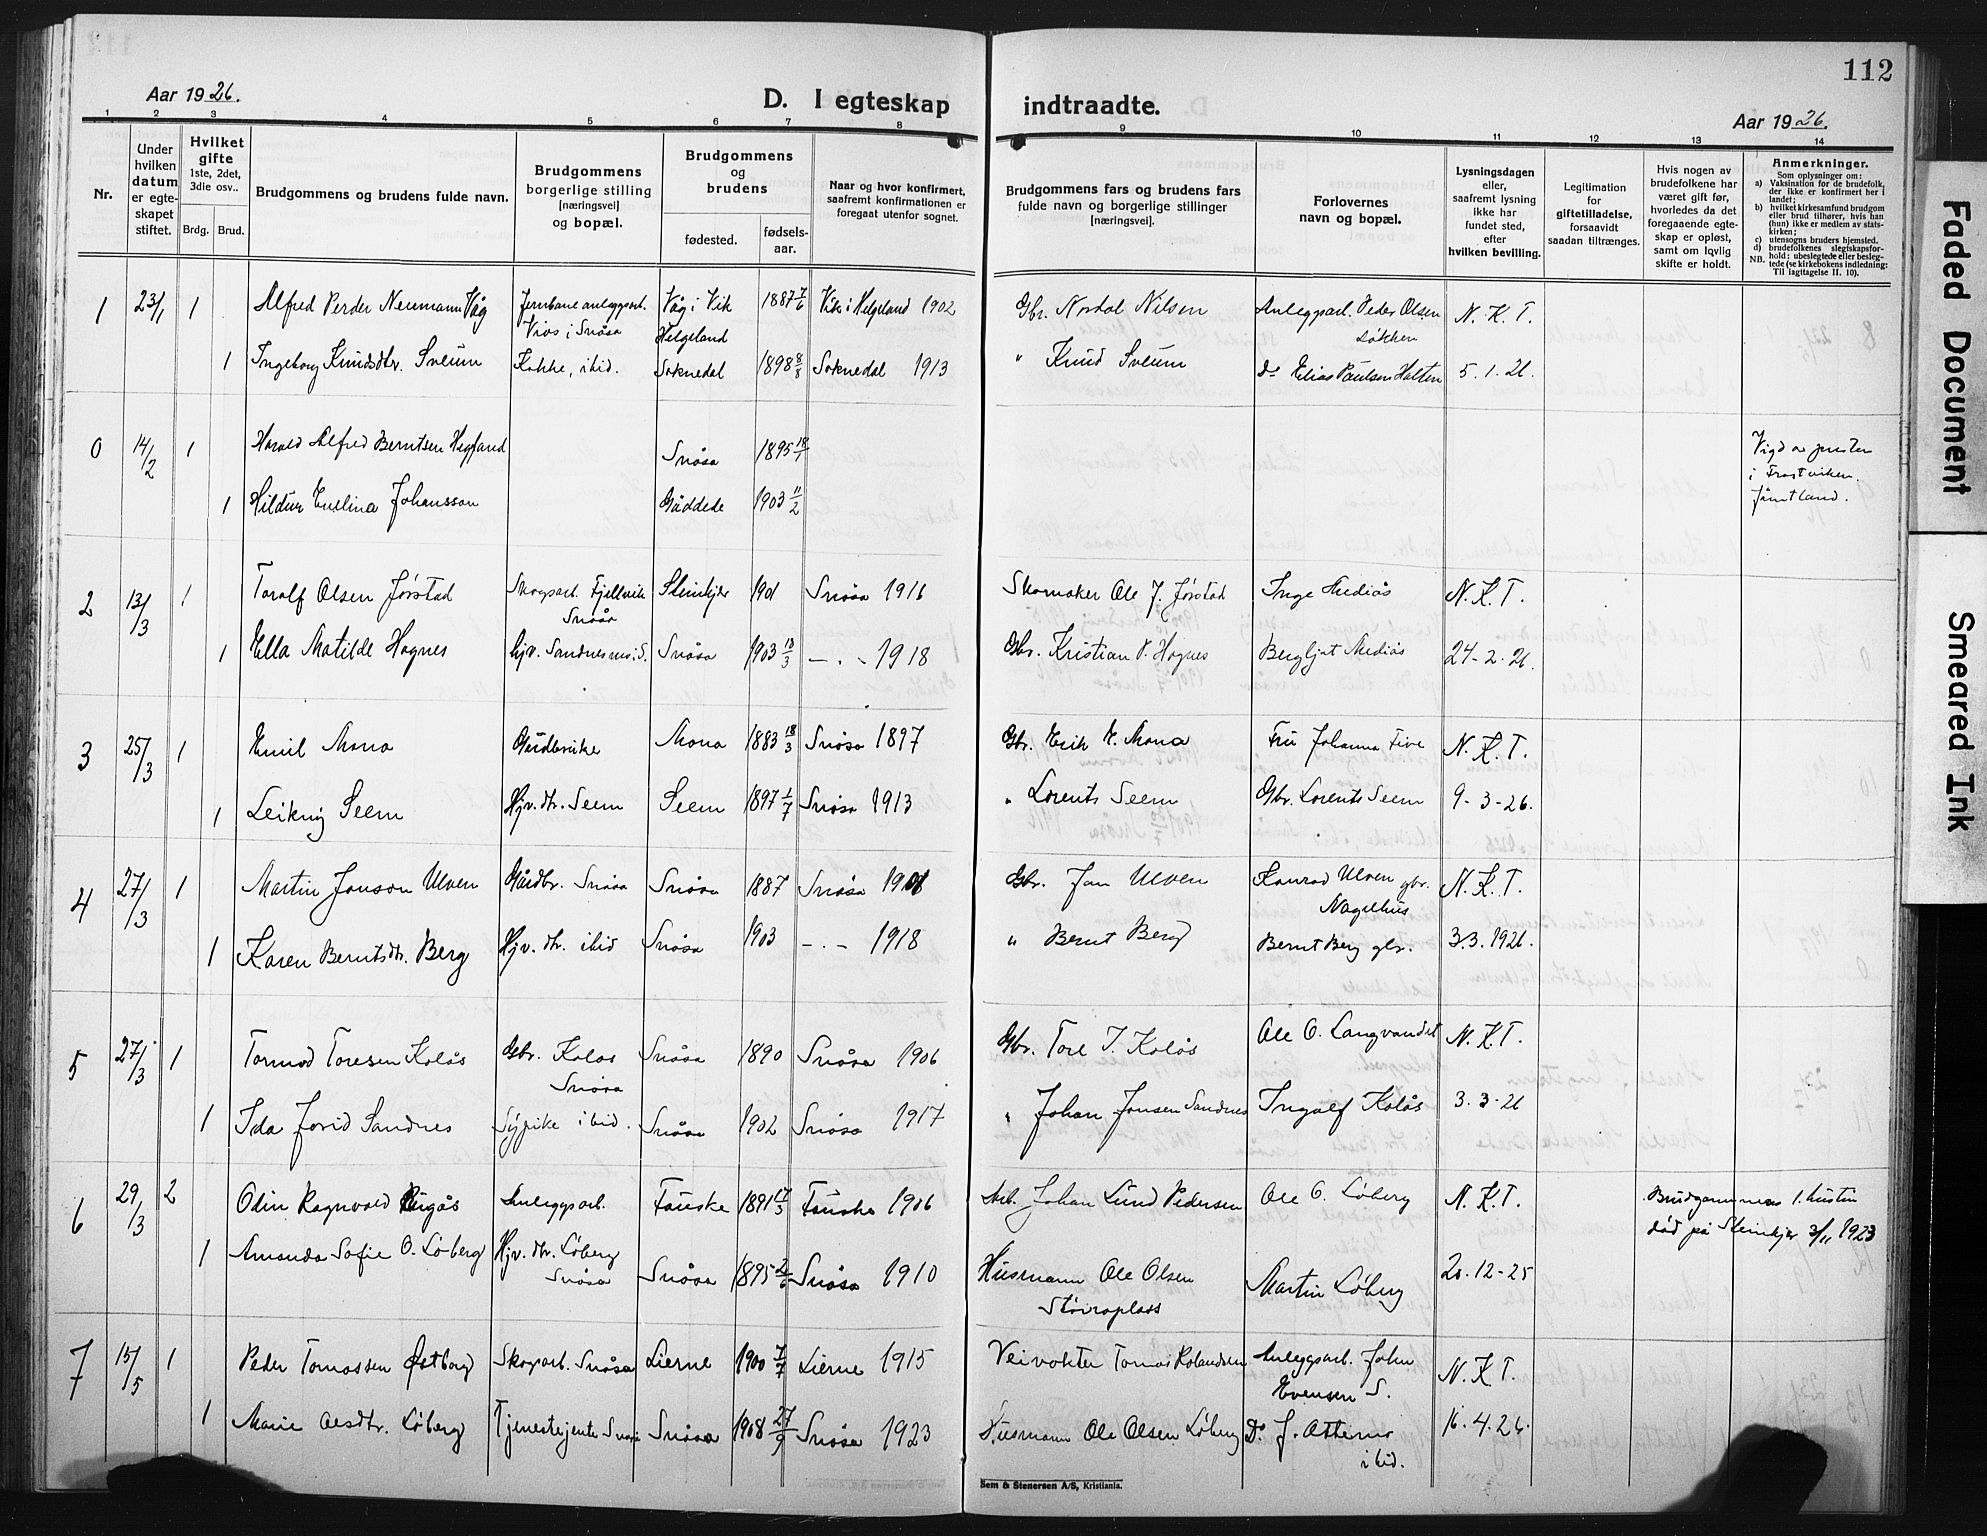 112
Aar 1926.
D. I egteskap indtraadte.
Aar 1926.
1 2 3 4 5 6 7 8 9 10 11 12 13 14
Nr.
Under hvilken datum er egte-skapet stiftet.
Hvilket gifte 1ste, 2det, 3die osv..
Brdg. Brud.
Brudgommens og brudens fulde navn.
Brudgommens borgerlige stilling [næringsvei] og bopæl.
Brudgommens og brudens
fødested. fødsels-aar.
Naar og hvor konfirmert, saafremt konfirmationen er foregaat utenfor sognet.
Brudgommens fars og brudens fars fulde navn og borgerlige stillinger [næringsvei]
Forlovernes navn og bopæl.
Lysningsdagen eller, saafremt lysning ikke har fundet sted, efter hvilken bevilling.
Legitimation for giftetilladelse, forsaavidt saadan tiltrænges.
Hvis nogen av brudefolkene har været gift før, hvorledes da det foregaaende egte-skap er opløst, samt om lovlig skifte er holdt.
Anmerkninger.
Som oplysninger om:
a) Vaksination for de brudefolk, der ikke er konfirmert her i landet;
b) hvilket kirkesamfund brudgom eller brud tilhører, hvis han (hun) ikke er medlem av stats-kirken;
c) utensogns bruders hjemsted.
d) brudefolkenes slegtskapsfor-hold: ubeslegtede eller besleg-tede (se kirkebokens indledning:
NB. Til iagttagelse II. 10).
1 23/1 1 Alfred Perder Neumann Våg Jernbaneanleggsarb. Våg i Vik 1887 7/6 Vik i Helgeland 1902 Gbr. Nordal Nilsen Anleggsarb. Peder Olsen N. K. T.
Vios i Snåsa Helgeland Løkken
1 Ingeborg Knudsdtr. Sveum Kokke, ibid. Soknedal 1898 8/8 Soknedal 1913 " Knud Sveum Do Elias Paulsen Halten 5. 1. 26.
0 14/2 1 Harald Alfred Berntsen Snåsa 1895 18/1 Vigd av presten
i Frostviken.
1 Hildur Evelina Johansson Gäddede 1903 11/2 Jämtland.
2 13/3 1 Toralf Olsen Jørstad Skogsarb. Fjellvik Steinkjer 1901 Snåsa 1916 Skomaker Ole J. Jørstad Inge Mediås N. K. T.
Snåsa
1 Ella Matilde Hognes hjv. Sandnesmo i S. Snåsa 1903 10/3 - . - 1918 Gbr. Kristian P. Hognes Bergljot Mediås 24-2-26.
3 25/3 1 Emil Mona Gårdbruker Mona 1883 18/3 Snåsa 1897 Gbr. Erik E. Mona Fru Johanna Five N. K. T.
1 Leikny Seem Hjv. dtr. Seem Seem 1897 1/7 Snåsa 1913 " Lorents Seem Gbr. Lorents Seem 9-3-26.
4 27/3 1 Martin Jonson Ulven Gårdbr. Snåsa Snåsa 1887 Snåsa 1901 Gbr. Jon Ulven Konrad Ulven gbr. N. K. T.
Nagelhus
1 Karen Berntsdtr. Berg Hjv. dtr. ibid Snåsa 1903 - . - 1918 " Bernt Berg Bernt Berg gbr. 3.3.1926.
5 27/3 1 Tormod Toresen Kolås Gbr. Kolas Snåsa 1890 Snåsa 1906 Gbr. Tore J. Kolås Ole O. Langvandet N. K. T.
Snåsa
1 Ida Jorid Sandnes Sypike ibid. Snåsa 1902 Snåsa 1917 " Johan Jonsen Sandnes Ingolf Kolås 3. 3-26
6 29/3 2 Odin Ragnvald Anleggsarb. Fauske 1891 17/3 Fauske 1906 Arb. Johan Lund Pedersen Ole O. Løberg N. K. T. Brudgommens 1. hustru
død på Steinkjer 3/11 1923
1 Amanda Sofie O. Løberg Hjv. dtr. Løberg Snåsa 1895 2/6 Snåsa 1910 Husmann Ole Olsen Martin Løberg 20-12-25
Snåsa Støiraplass
7 15/5 1 Peder Tomassen Østborg Skogarb. Snåsa Lierne 1900 7/7 Lierne 1915 Veivokter Tomas Rolandsen Anleggsarb. John N. K. T.
Evensen S.
1 Marie Olsdtr. Løberg Tjenestejente Snåsa Snåsa 1908 27/9 Snåsa 1923 Husmann Ole Olsen Løberg Do J. Attemo 16. 4. 26.
ibid.
Sem & Stenersen A/S, Kristiania.
Faded Document
Smeared Ink